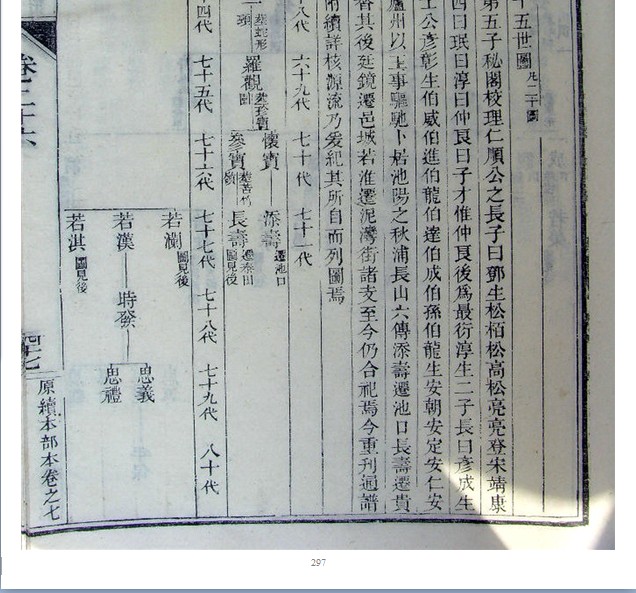 十五世圖 凡二十圖
第五子秘閣校理仁順公之長子曰鄧生松栢松高松亮亮登宋靖康
四曰珉曰淳曰仲良曰子才惟仲良後爲最衍淳生二子長曰彦成生
上公彦彰生伯威伯進伯龍伯達伯成伯孫伯龍生安朝安定安仁安
廬州以王事驅馳卜居池陽之秋浦長山六傳添壽遷池口長壽遷貴
其後延鏡遷邑城若淮遷泥灣街諸支至今仍合祀焉今重刊通譜
附續詳核源流乃爰紀其所自而列圖焉
六十九代 七十代 七十一代
懷寶 添壽 遷池口
羅觀
參寶 長壽 遷泰田 圖見後
四代 七十五代 七十六代 七十七代 七十八代 七十九代 八十代
若瀾 圖見後
若漢 時發 思義
思禮
若淇 圖見後
卷二十六
原續本部本卷之七
297